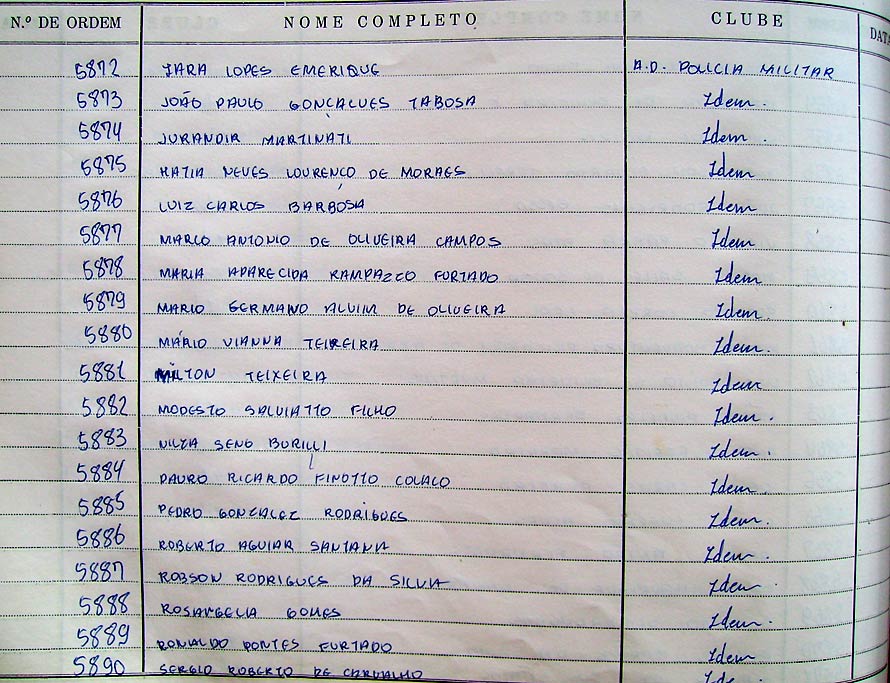 N.º DE ORDEM NOME COMPLETO CLUBE DATA
5872 IARA LOPES EMERIQUE A.D. POLICIA MILITAR
5873 JOÃO PAULO GONÇALVES TABOSA Idem.
5874 JURANDIR MARTINATI Idem.
5875 KATIA NEVES LOURENÇO DE MORAES Idem
5876 LUIZ CARLOS BARBOSA Idem
5877 MARCO ANTONIO DE OLIVEIRA CAMPOS Idem
5878 MARIA APARECIDA RAMPAZZO FURTADO Idem
5879 MARIO GERMANO ALVIM DE OLIVEIRA Idem
5880 MÁRIO VIANNA TEIXEIRA Idem.
5881 MILTON TEIXEIRA Idem
5882 MODESTO SALVIATTO FILHO Idem.
5883 NILZA SENO BORILLI Idem.
5884 RICARDO FINOTTO COLAÇO Idem.
5885 PEDRO GONZALEZ RODRIGUES Idem.
5886 ROBERTO AGUIAR SANTANA Idem.
5887 ROBSON RODRIGUES DA SILVA Idem.
5888 GOMES Idem.
5889 RONALDO PONTES FURTADO Idem
5890 SERGIO ROBERTO DE CARVALHO Idem.